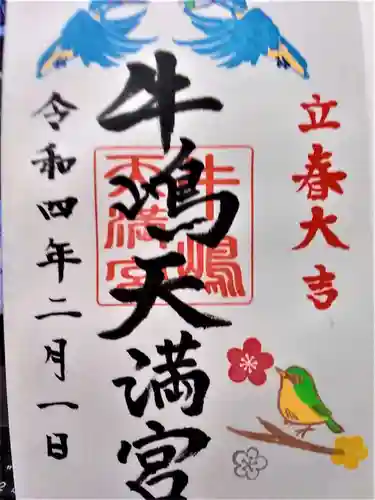 立春大吉
牛嶋天満宮
牛嶋
天満宮
令和四年二月一日